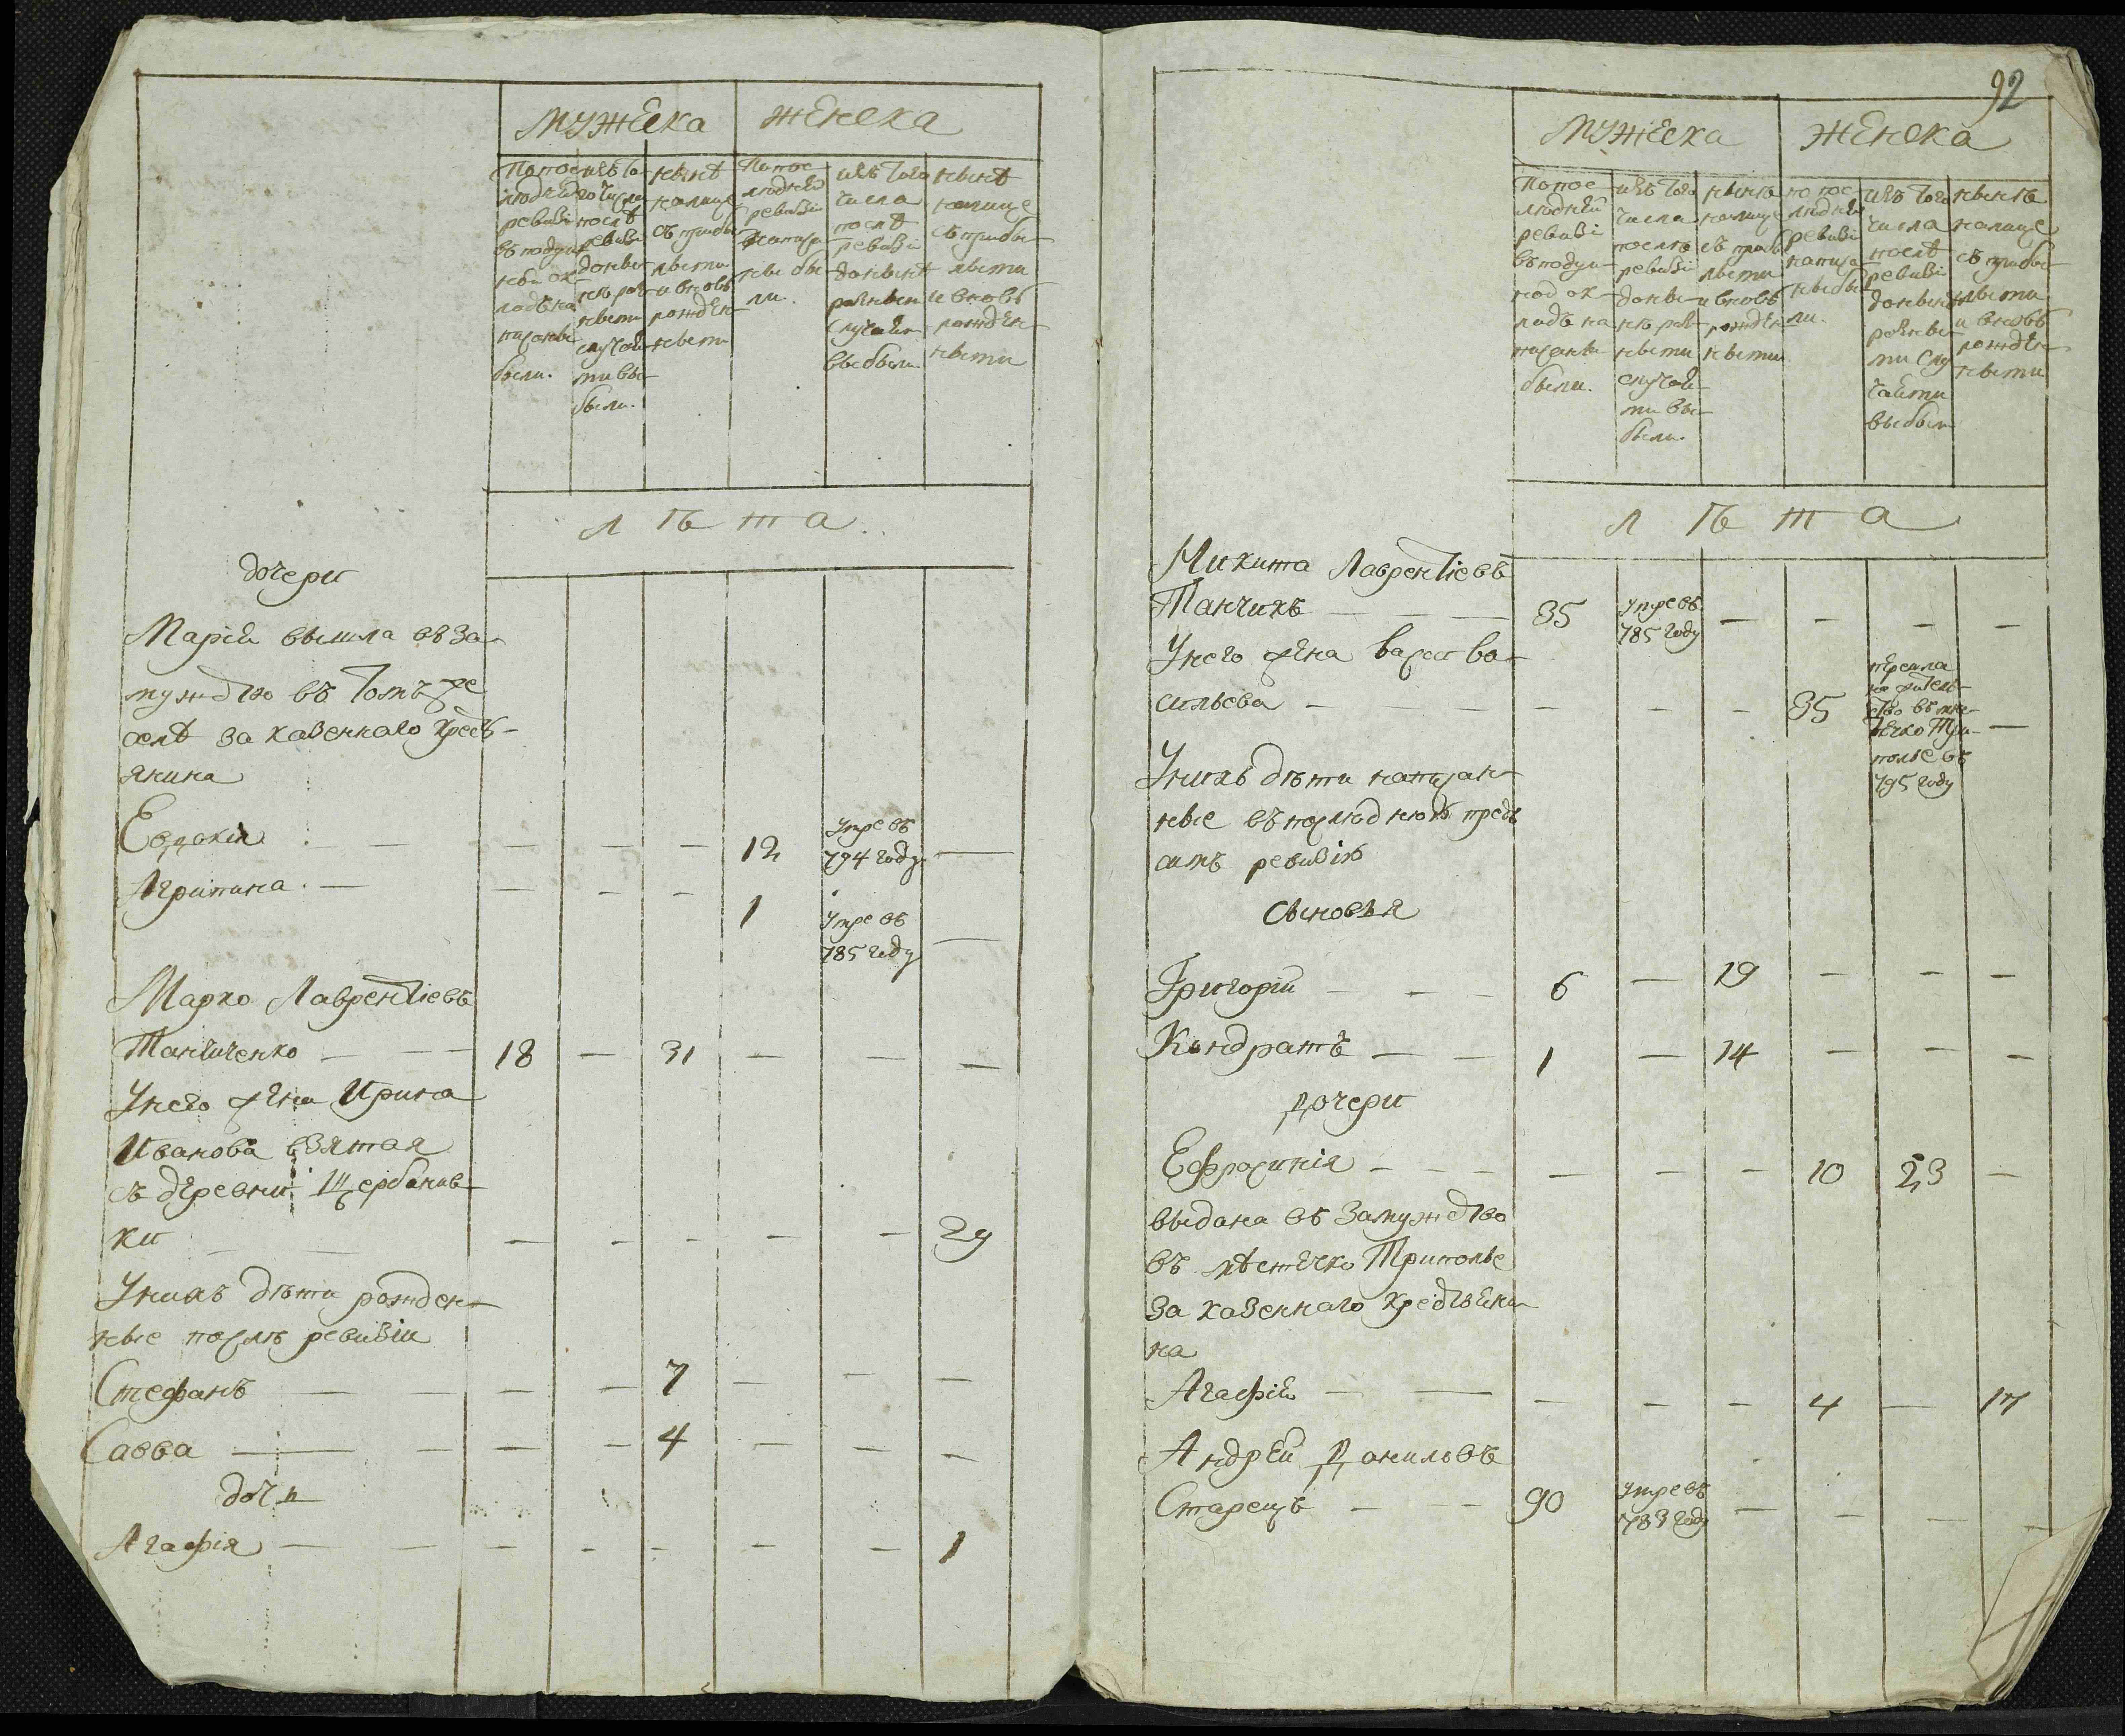 мужеска женска
По пос-
людней
ревизіи
въ подуш-
ной ок-
ладъ на-
писаны
были.
изъ то-
го числа
послѣ
ревизіи
до ны-
нѣ раз-
ными
случаи-
ми вы-
были.
нынѣ
налице
съ прибы-
лыми
и вновь
рожден-
ными
По пос-
людней
ревизіи
написа-
ны бы-
ли.
изъ того
числа
послѣ
ревизіи
до нынѣ
разными
случаи-
выбыли.
нынѣ
налице
съ прибы-
лыми
и вновь
рожден-
ными
лѣта
дочери
Марія вышла въ за-
мужство въ томъ же
селѣ за казеннаго крест-
янина
Евдокия — — — — 12 умре въ 794 году —
Агрипина — — — — 1 умре въ 785 году —
Марко Лаврентіевъ
Танчиченко — — 18 — 31 — — —
У него жена Ирина
Иванова взятая
съ деревни Щербанив-
ки — — — — — — — 29
У нихъ дѣти рожден-
ные послѣ ревизіи
Стефанъ — — — — 7 — — —
Савва — — — — 4 — — —
дочь
Агафія — — — — — — — 1
92
мужеска женска
По пос-
людней
ревизіи
въ подуш-
ной ок-
ладъ на
писаны
были.
изъ того
числа
послѣ
ревизіи
до ны-
нѣ раз-
ными
случаи-
ми вы-
были.
нынѣ
налице
съ прибы-
лыми
и вновь
рожден-
ными
по пос-
людней
ревизіи
написа-
ны бы-
ли.
изъ того
числа
послѣ
ревизіи
до нынѣ
разны-
ми слу-
чаими
выбыли
нынѣ
налице
съ прибы-
лыми
и вновь
рожден-
ными
лѣта
Микита Лаврентіевъ
Танчикъ — — 35 умре въ 785 году — — — —
У него жена Ва-
сильева — — — — — 35 перешла на жител-
ство въ мѣ-
стечко Три-
полье въ
795 году —
У нихъ дѣти написан-
ные въ послюднюю предъ
симъ ревизію
сыновья
Григорій — — — 6 — 19 — — —
Кондратъ — — 1 — 14 — — —
дочери
Ефросинія — — — — — — 10 23 —
выдана въ замужство
въ мѣстечко Триполье
за казеннаго крестьяни-
на
Агафія — — — — — 4 — 17
Андрей Даниловъ
Старецъ — — 90 умре въ 783 году — — — —